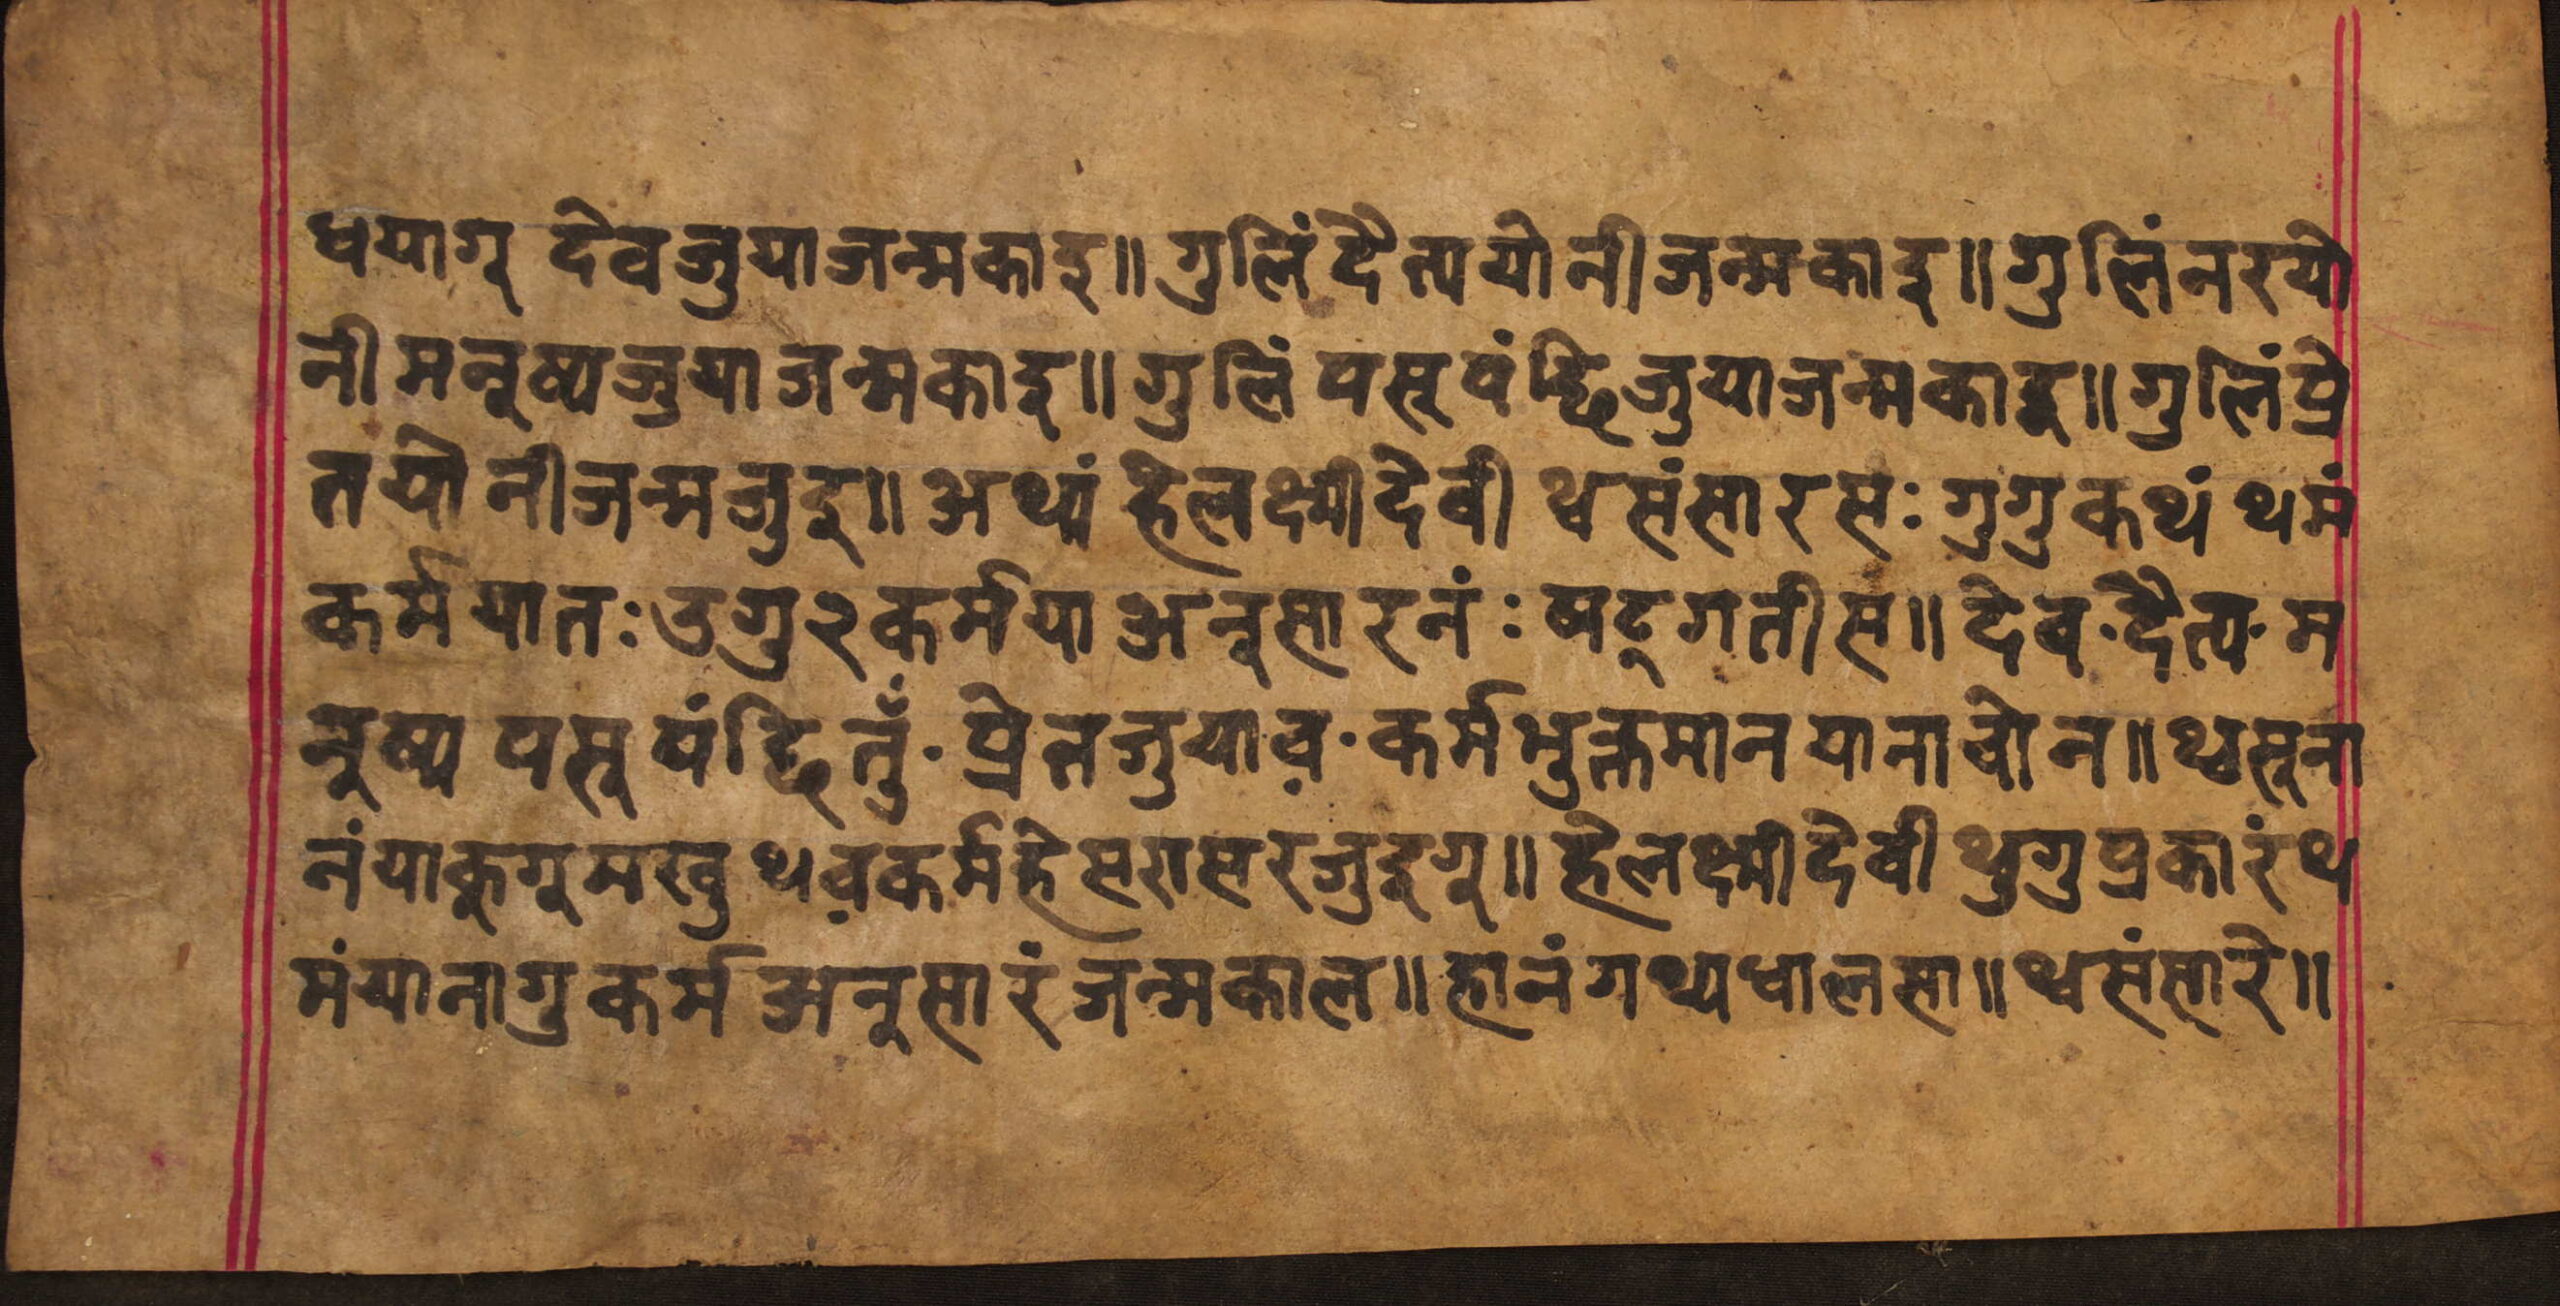 धयागू देवजुयाजन्मकाइ॥ गुलिं दैत्ययोनीजन्मकाइ॥ गुलिंनरयो
नी मनूष्यजुयाजन्मकाइ॥ गुलिं पसू पंछि जुयाजन्मकाइ॥ गुलिंप्रे
तयोनीजन्मजुइ॥ अथ्यं हेलक्ष्मीदेवी थ्वसंसारसः गुगुकथं थमं
कर्मयातः उगु२कर्मया अनूसारनंः षट्गतीस॥ देव·दैत्य·म
नूष्य पसू पंछि तुँ·प्रेतजुयाव़·कर्मभुक्तमानयानाचोन॥ थ्वसूना
नंयाकूगूमखु थव़कर्महेसरासरजुइगू॥ हेलक्ष्मीदेवी थुगुप्रकारंथ
मंयानागु कर्म अनूसारं जन्मकाल॥ हानंगथ्यधालसा॥ थ्वसंसारे॥